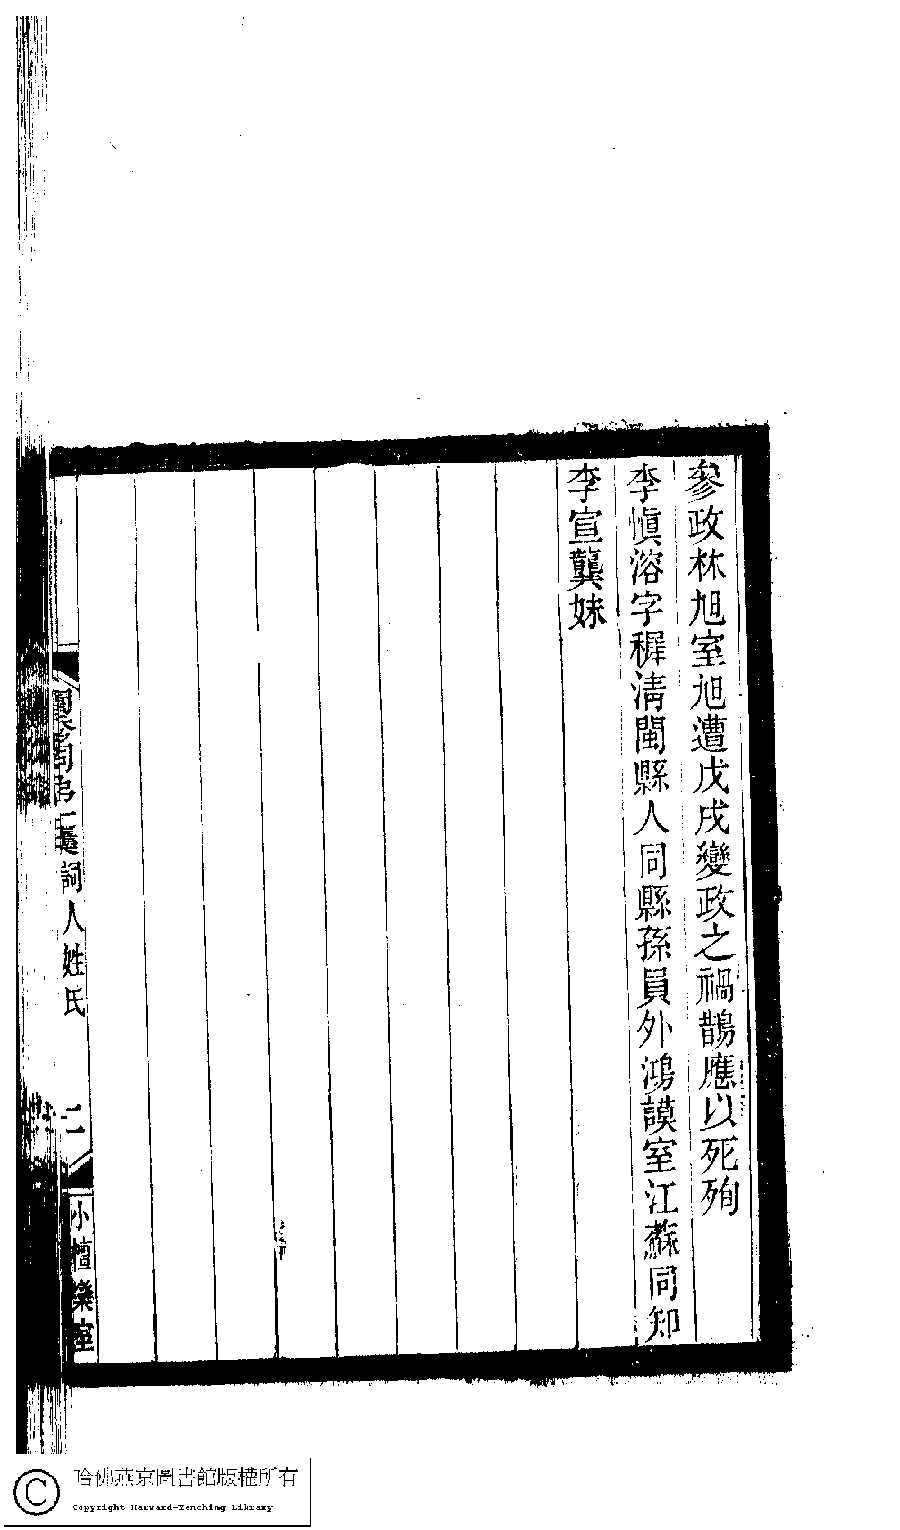 參政林旭室旭遭戊戌變政之禍鵲應以死殉
李愼溶字穉淸閩縣人同縣孫員外鴻謨室江蘇同知
李宣龔妹
閨秀詞 集詞人姓氏
二
小檀欒室
哈佛燕京圖書館版權所有
Copyright Harvard-Yenching Library